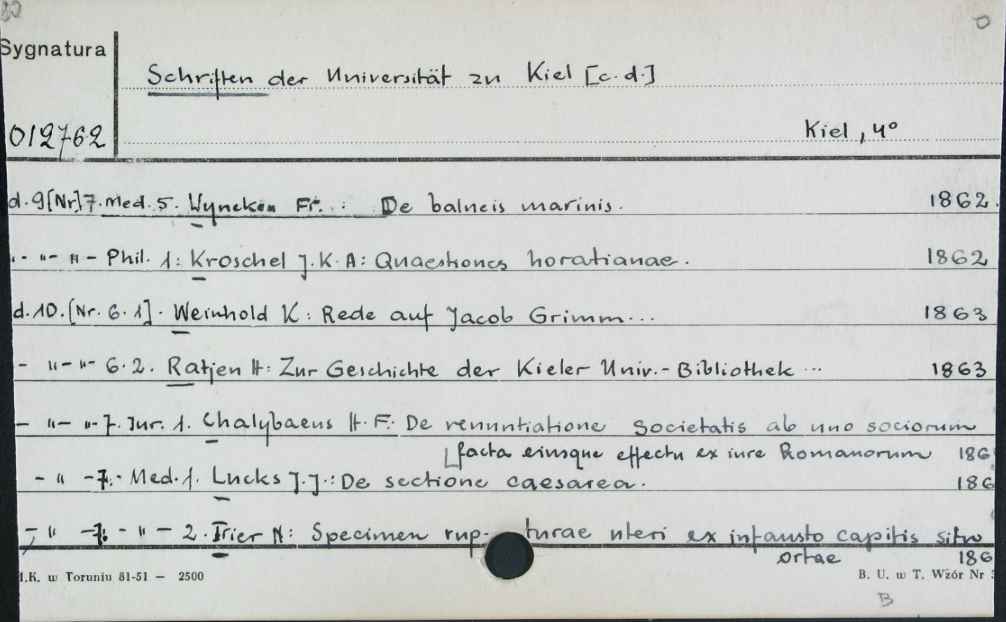 Sygnatura
Schriften der Universität zu Kiel [c.d.]
012762
Kiel, 4°
d.9[Nr]7.Med.5. Wyneken Fr.: De balneis marinis. 1862.
- " - " - Phil. 1: Kroschel J.K.A: Quaestiones horatianae. 1862
d.10.[Nr. 6.1]. Weinhold K: Rede auf Jacob Grimm... 1863
- " - " - 6.2. Ratjen H: Zur Geschichte der Kieler Univ.-Bibliothek ... 1863
- " - " - 7. Jur. 1. Chalybaeus H.F. De renuntiatione Societatis ab uno sociorum
facta eiusque effectu ex iure Romanorum 186
- " - 7.- Med.1. Lucks J.J.: De sectione caesarea. 186
- " - 7. - " - 2. Trier N: Specimen rup- turae uteri ex infausto capitis situ
ortae 186
I.K. w Toruniu 81-51 — 2500
B. U. w T. Wzór Nr
B